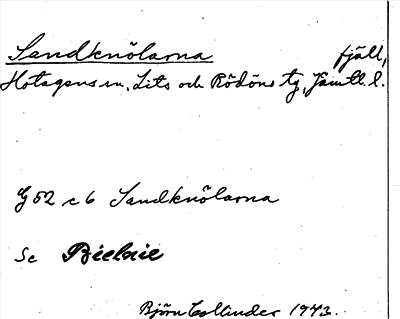 Sandknölarna fjäll,
Hotagens sn, Lits och Rödöns tg, Jämtl. l.
G 52 c 6 Sandknölarna
Se Bielnie
Björn Collinder 1943.